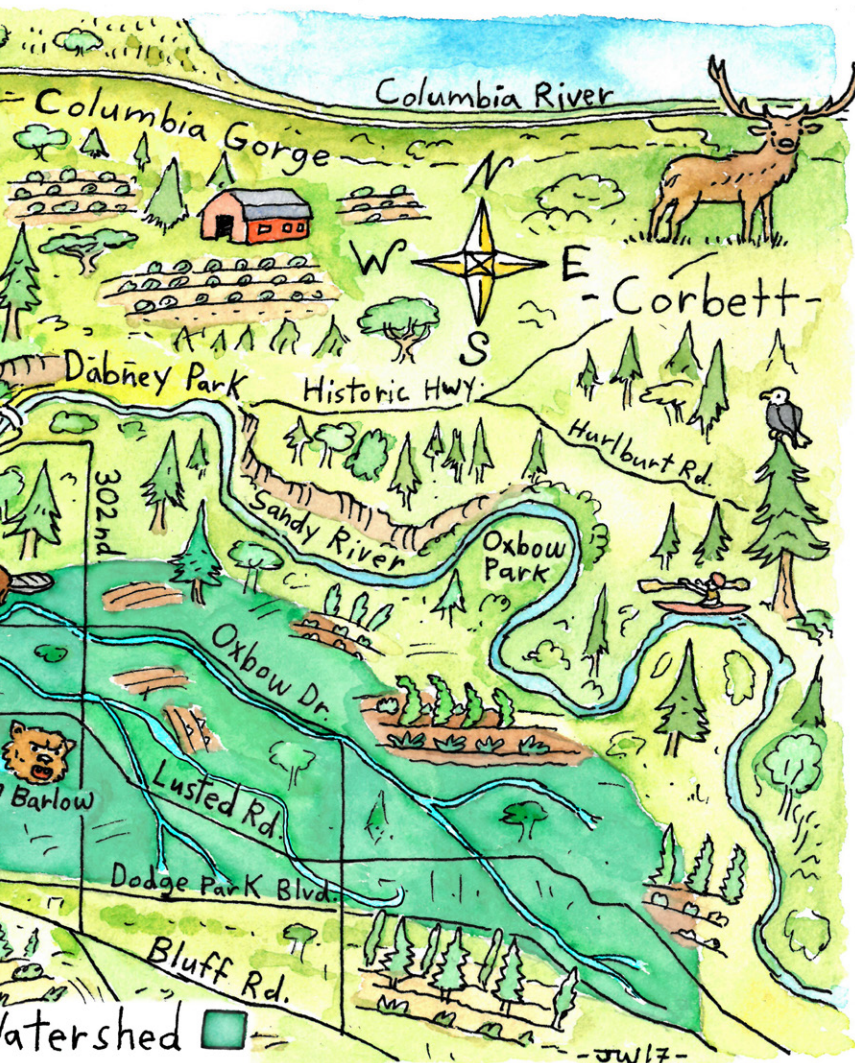 Columbia River
Columbia Gorge
N
W
E
S
-Corbett-
Dabney Park
Historic Hwy.
Hurlburt Rd.
302nd
Sandy River
Oxbow
Park
Oxbow Dr.
Barlow
Lusted Rd.
Dodge Park Blvd.
Bluff Rd.
Watershed
-JW17-